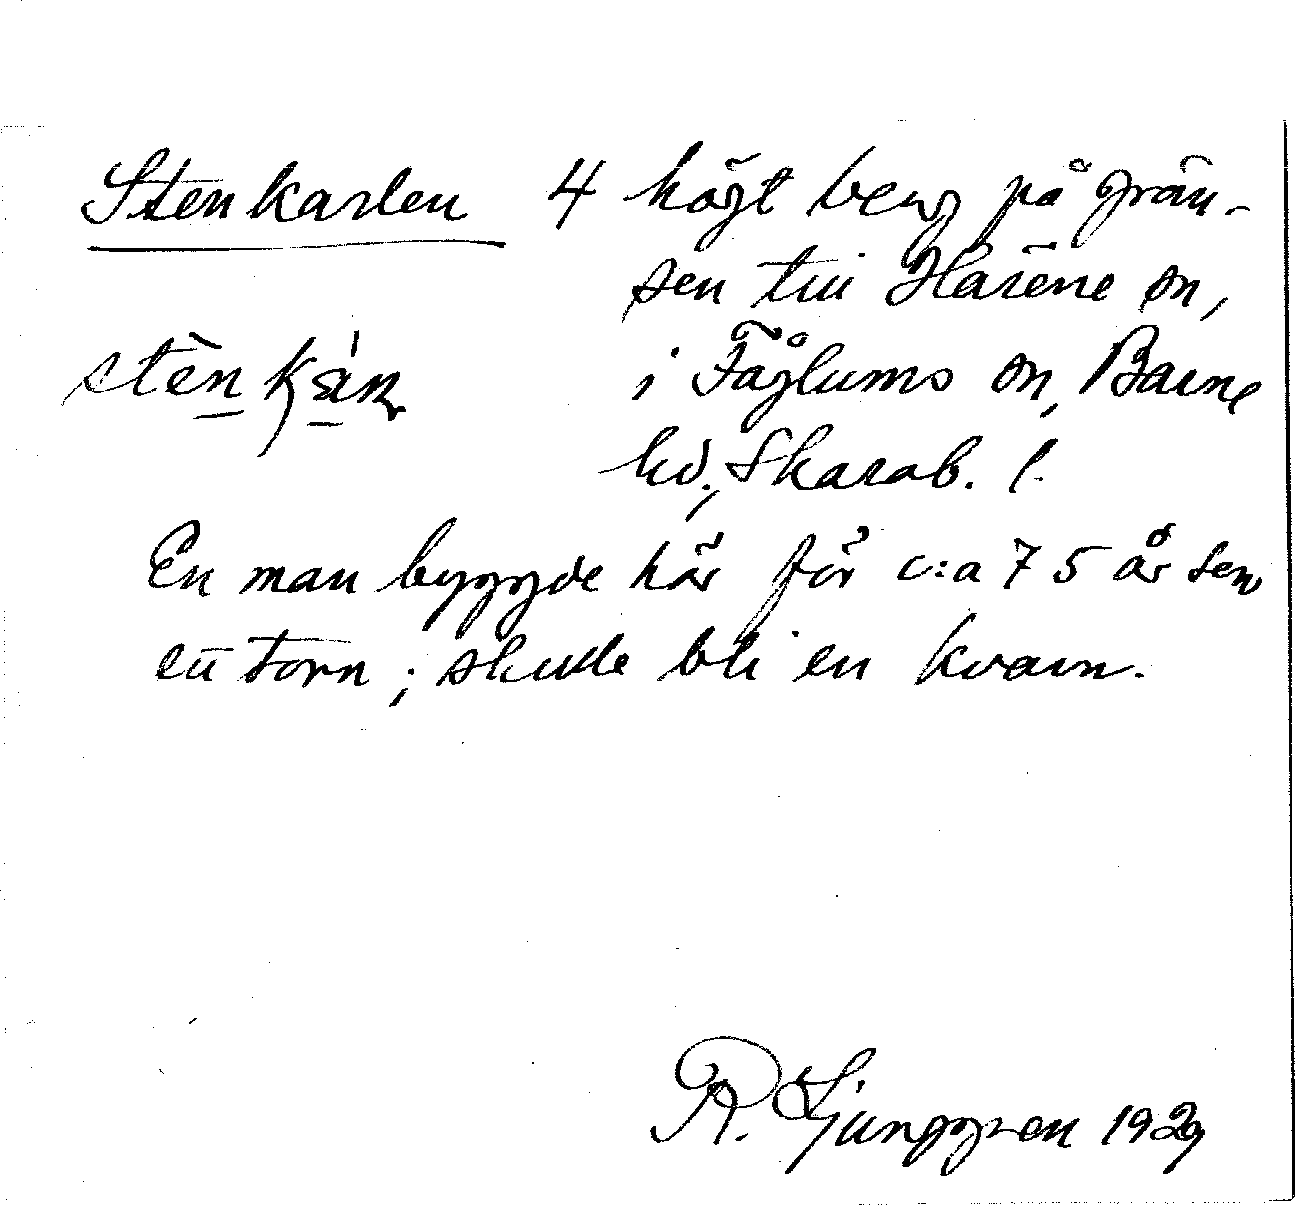 Stenkarlen 4 högt berg på grän-
sen till Härene sn,
i Fåglums sn, Barne
hd., Skarab. l.
En man byggde här för c:a 75 år sen
ett torn; skulle bli en kvarn.
R. Ljunggren 1929